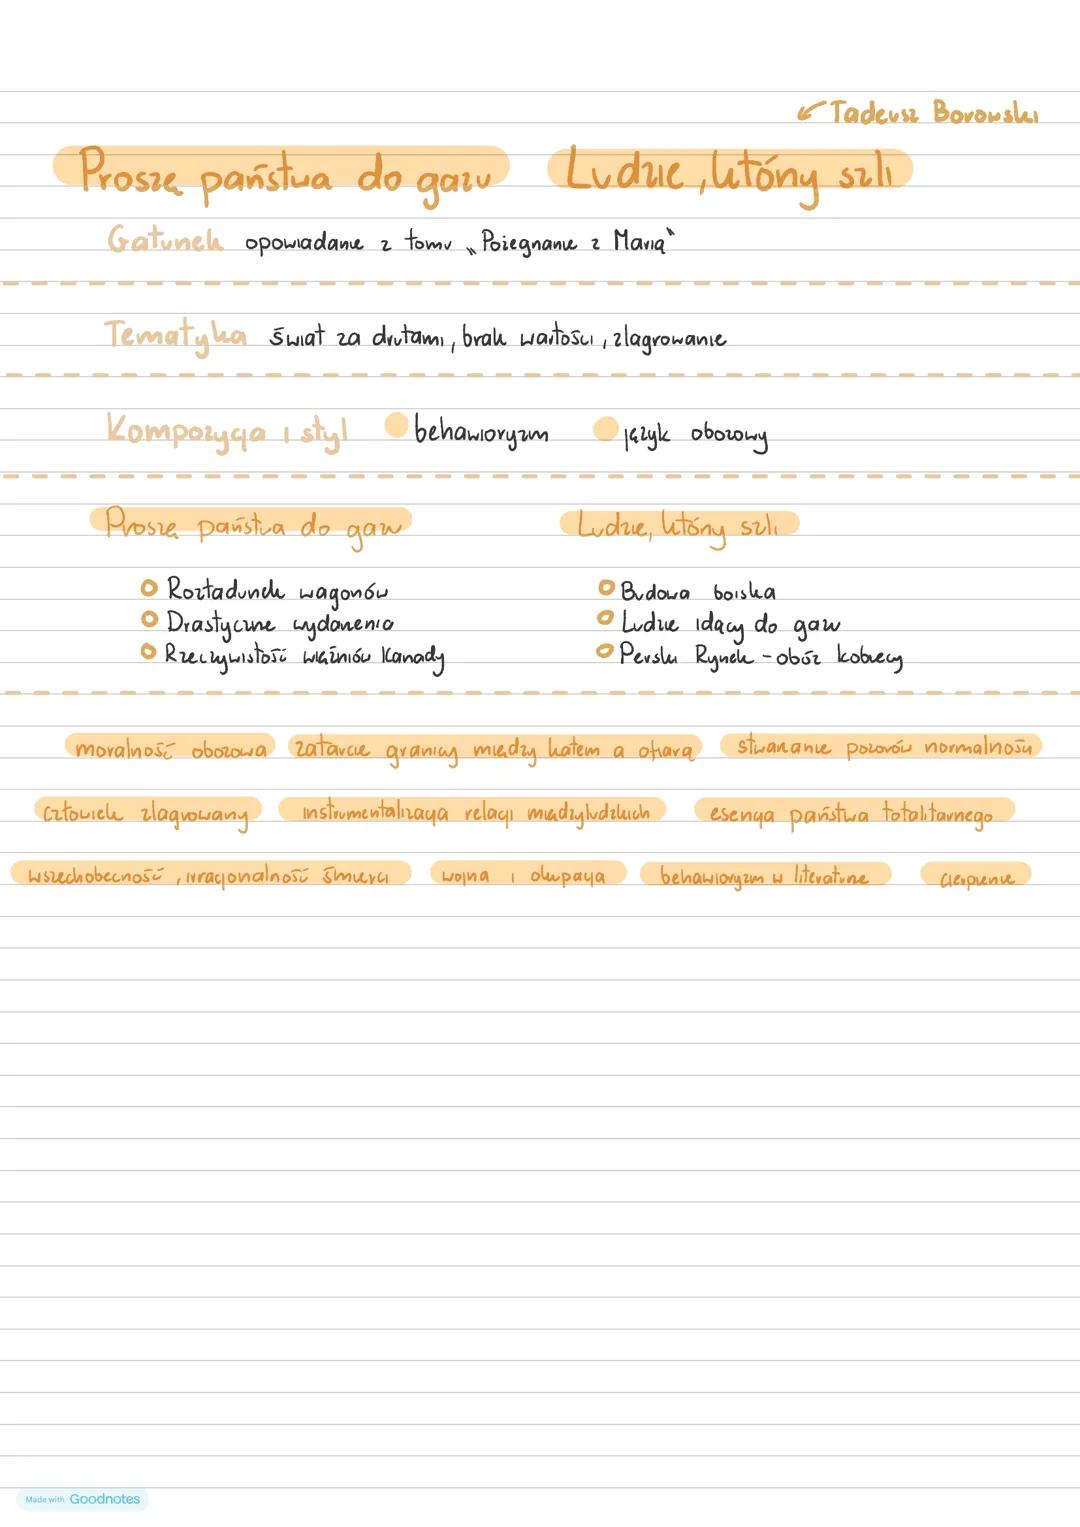 Tadeusz Borowski
Proszę państwa do gazu Ludzie, którzy szli
Gatunek opowiadanie z tomu „Pożegnanie z Marią"
Tematyka świat za drutami, brak wartości, zlagrowanie
Kompozycja i styl behawioryzm język obozowy
Proszę państwa do gazu Ludzie, którzy szli
Rozładunek wagonów Budowa boiska
Drastyczne wydarzenia Ludzie idący do gazu
Rzeczywistość więźniów Kanady Perski Rynek - obóz kobiecy
moralność obozowa zatarcie granicy między katem a ofiarą stwarzanie pozorów normalności
człowiek zlagrowany instrumentalizacja relacji międzyludzkich esencja państwa totalitarnego
wszechobecność, irracjonalność śmierci wojna i okupacja behawioryzm w literaturze cierpienie
Made with Goodnotes